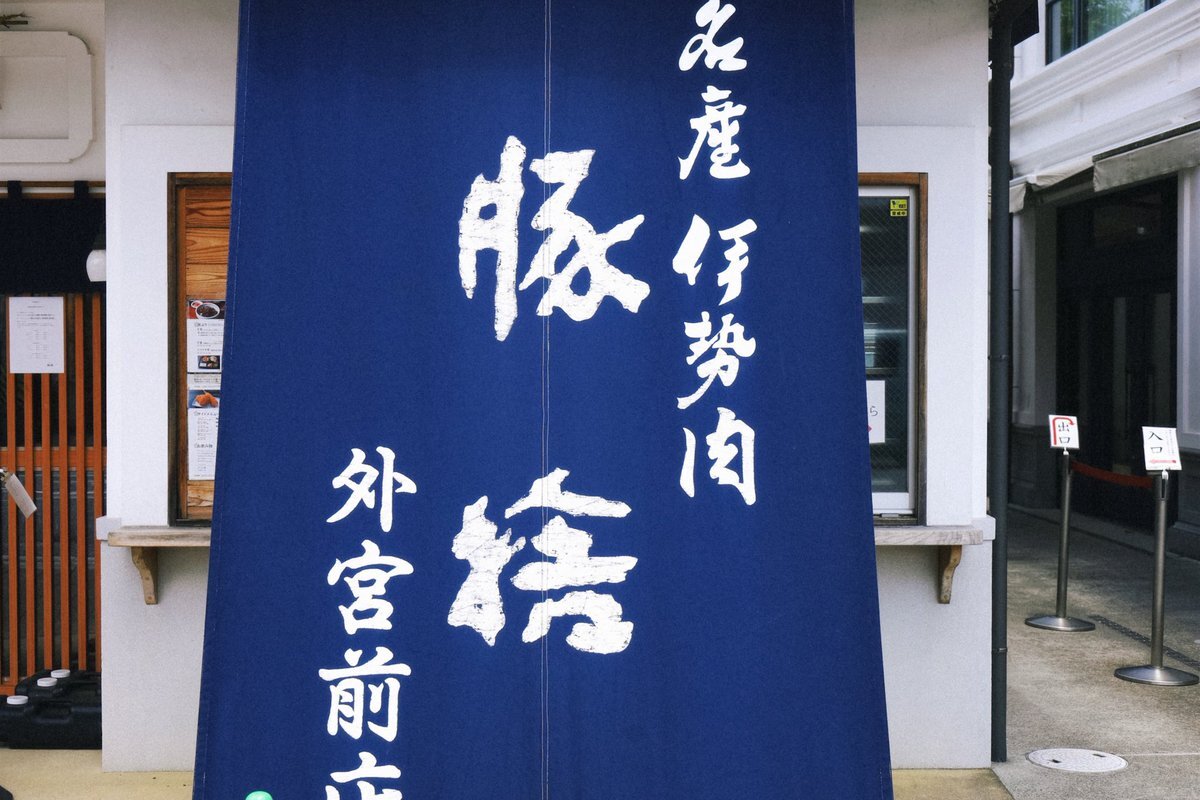 名産 伊勢肉
豚捨
外宮前店
出口
入口